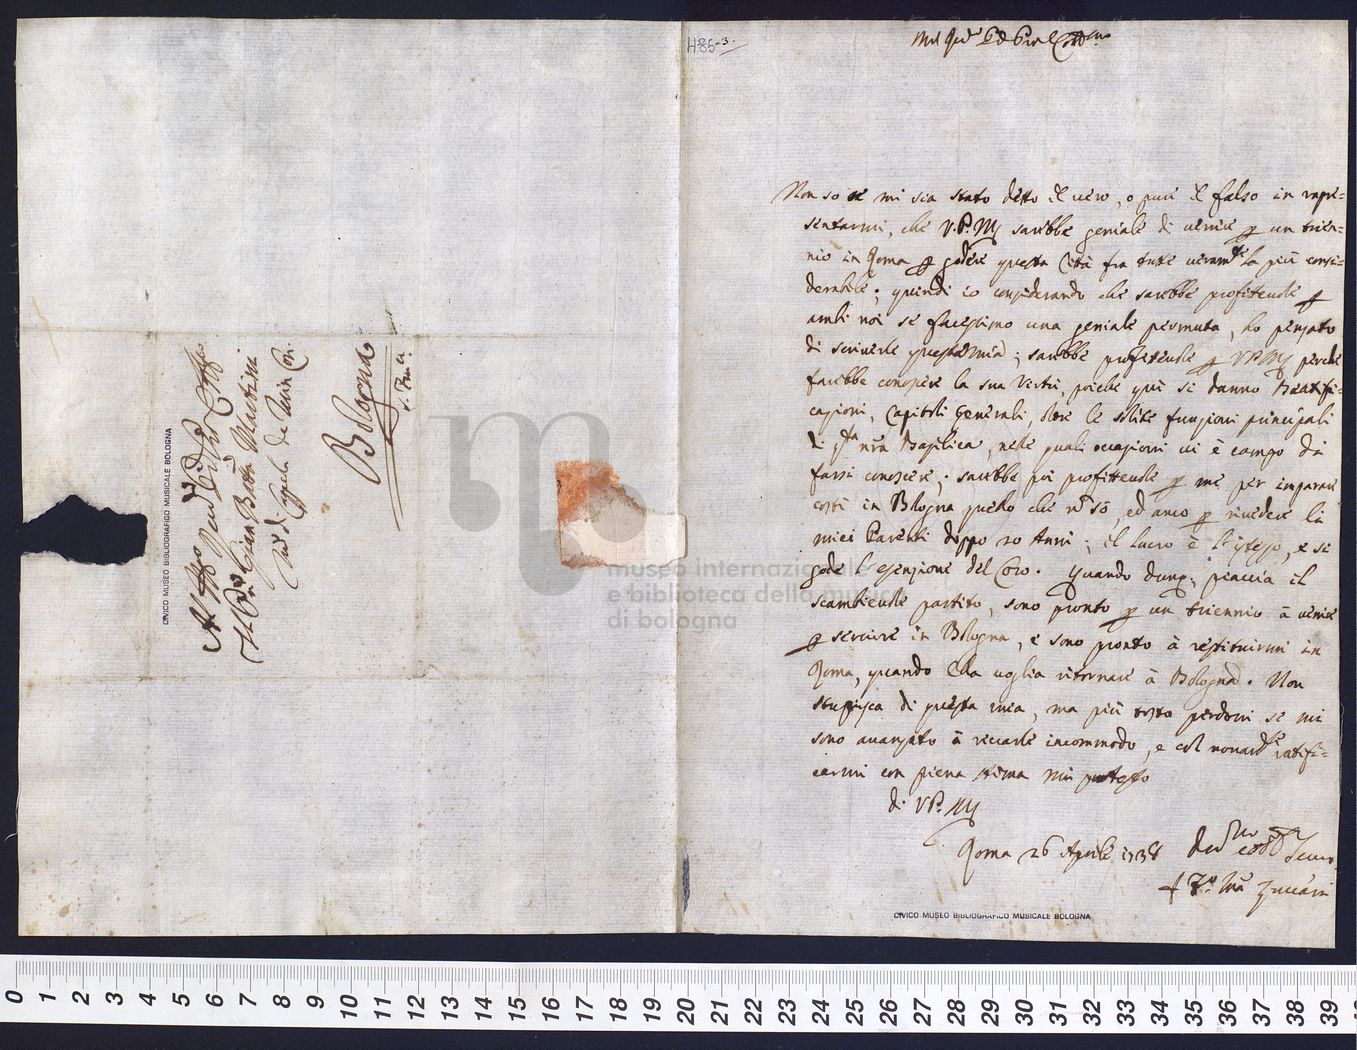 H86-3.
Non so se mi sia stato detto il vero, o pure il falso in rapre-
sentarmi, che V. P. M. sarebbe geniale di venire p un trien-
nio in Roma p godere questa Città fra tutte veram.te la più consi-
derabile; quindi io considerando che sarebbe profittevole p
ambi noi se facessimo una geniale permuta, ho pensato
di scriverle questa mia; sarebbe profittevole p V P M perche
farebbe conoscere la sua Virtù, poiche quì si danno Beatifi-
cazioni, Capitoli Generali, oltre le solite funzioni principali
di q.ta nrã Basilica, nelle quali occasioni vi è campo di
farsi conoscere; sarebbe poi profittevole p me per imparare
costì in Bologna quello che nõ sò, ed anco p rivedere li
miei Parenti doppo 20 Anni; il lucro è l'istesso, e si
gode l'esenzione del Coro. Quando dunq; piaccia il
scambievole partito, sono pronto p un triennio à venire
p servire in Bologna, e sono pronto à restituirmi in
Roma, quando Ella voglia ritornare à Bologna. Non
stupisca di questa mia, ma più tosto perdoni se mi
sono avanzato à recarle incommodo, e col
con piena stima mi protesto
di V P. M
Roma 26 Aprile 1738
Zuccari
CIVICO MUSEO BIBLIOGRAFICO MUSICALE BOLOGNA
Gian Batta Martini
di Cappella de Min: Con.
Bologna
CIVICO MUSEO BIBLIOGRAFICO MUSICALE BOLOGNA
museo internazionale
e biblioteca della musica
di bologna
0 1 2 3 4 5 6 7 8 9 10 11 12 13 14 15 16 17 18 19 20 21 22 23 24 25 26 27 28 29 30 31 32 33 34 35 36 37 38 39